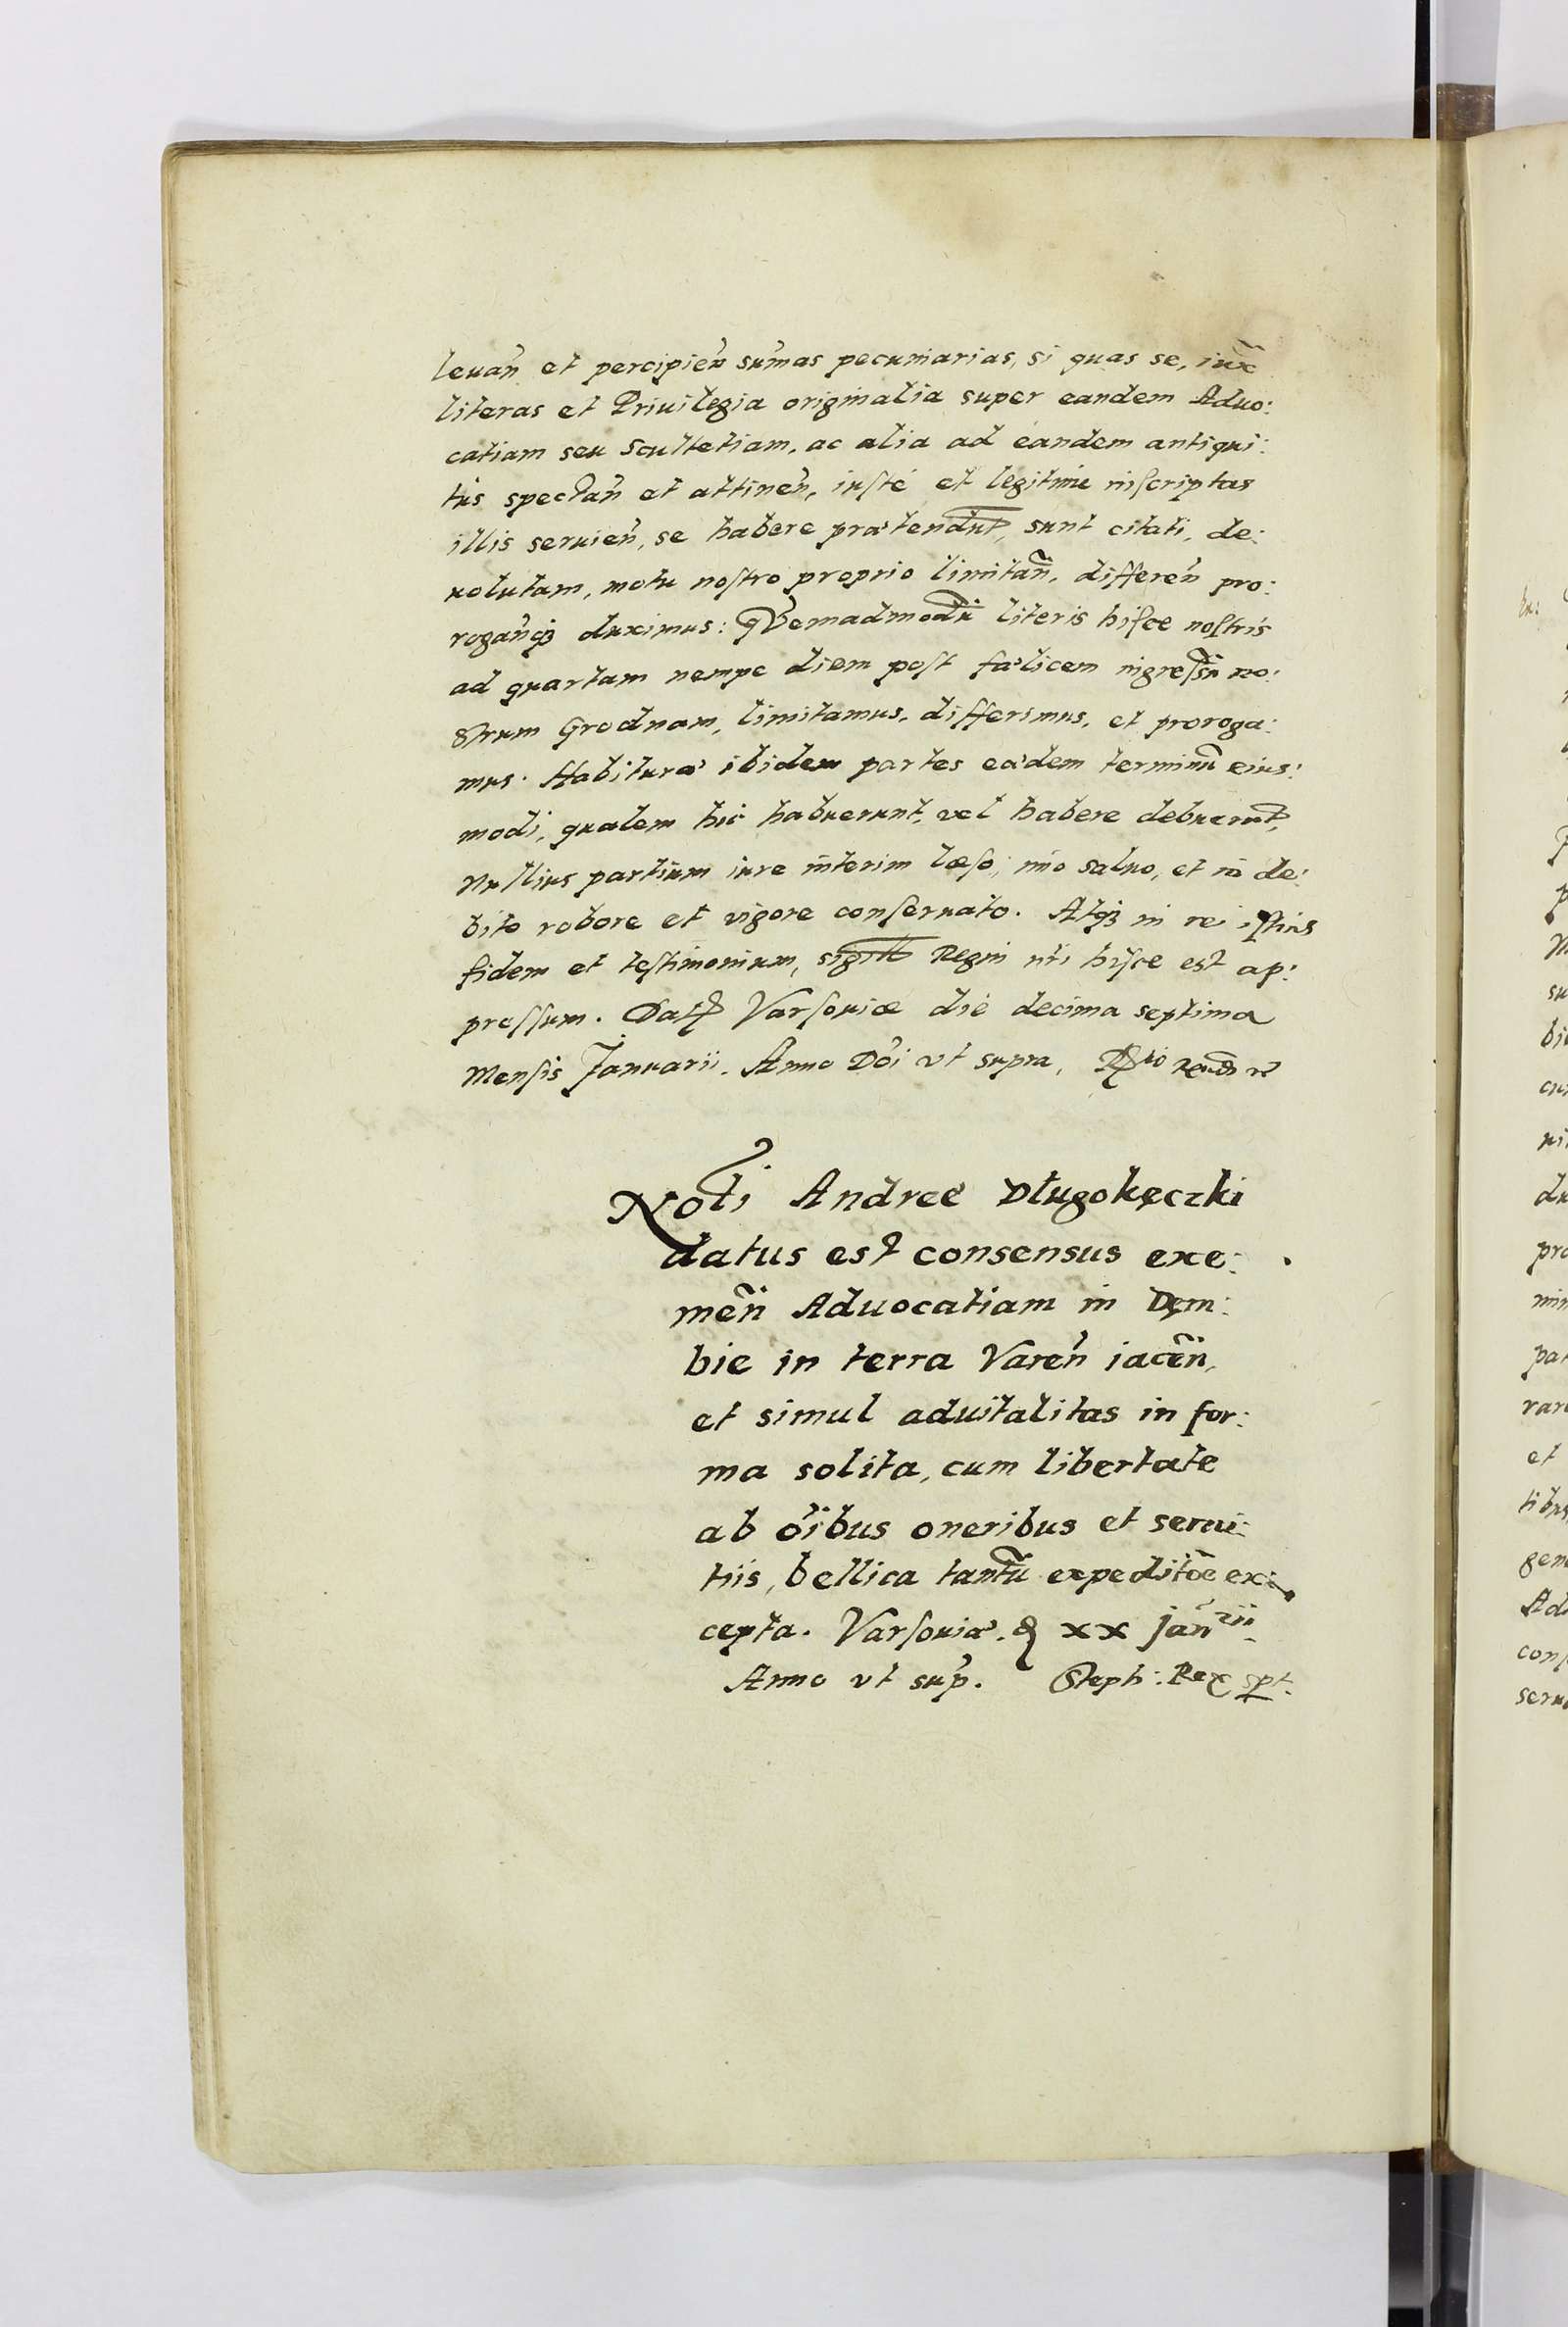 leuan̄ et percipien̄ sum̄as pecuniarias, si quas se, iux̄
literas et Priuilegia originalia super eandem Aduo:
catiam seu Scultetiam, ac alia ad eandem antiqui:
tus spectan̄ et attinen̄, iusté et legitime inscriptas
illis seruien̄, se habere prætendūt, sunt citati, de:
uolutam, motu nostro proprio limitan̄, differen̄ pro:
rogan̄q₃ duximus: qVemadmodū literis hisce nostris
ad quartam nempe diem post fælicem ingressū no:
strum Grodnam, limitamus, differimus, et proroga:
mus. Habituræ ibidem partes eædem terminū eius:
modi, qualem hic habuerunt, vel habere debuerūt,
Nullius partium iure interim læso, imo saluo, et in de:
bito robore et vigore conseruato. Atq₃ in rei istius
fidem et testimonium, sigill Regni nr̄i hisce est ap:
pressum. Dat Varsouiæ die decima septima
Mensis Januarii. Anno Dōi vt supra,
Nob̄i Andreę Długokęczki
datus est consensus exe:
men̄ Aduocatiam in Dęm:
bie in terra Varen̄ iacen̄,
et simul aduitalitas in for:
ma solita, cum libertate
ab ōibus oneribus et serui:
tiis, bellica tantū expeditōe ex:
cepta. Varsouiæ. d xx jan̄rii.
Anno vt sup̄. Steph: Rex spt.